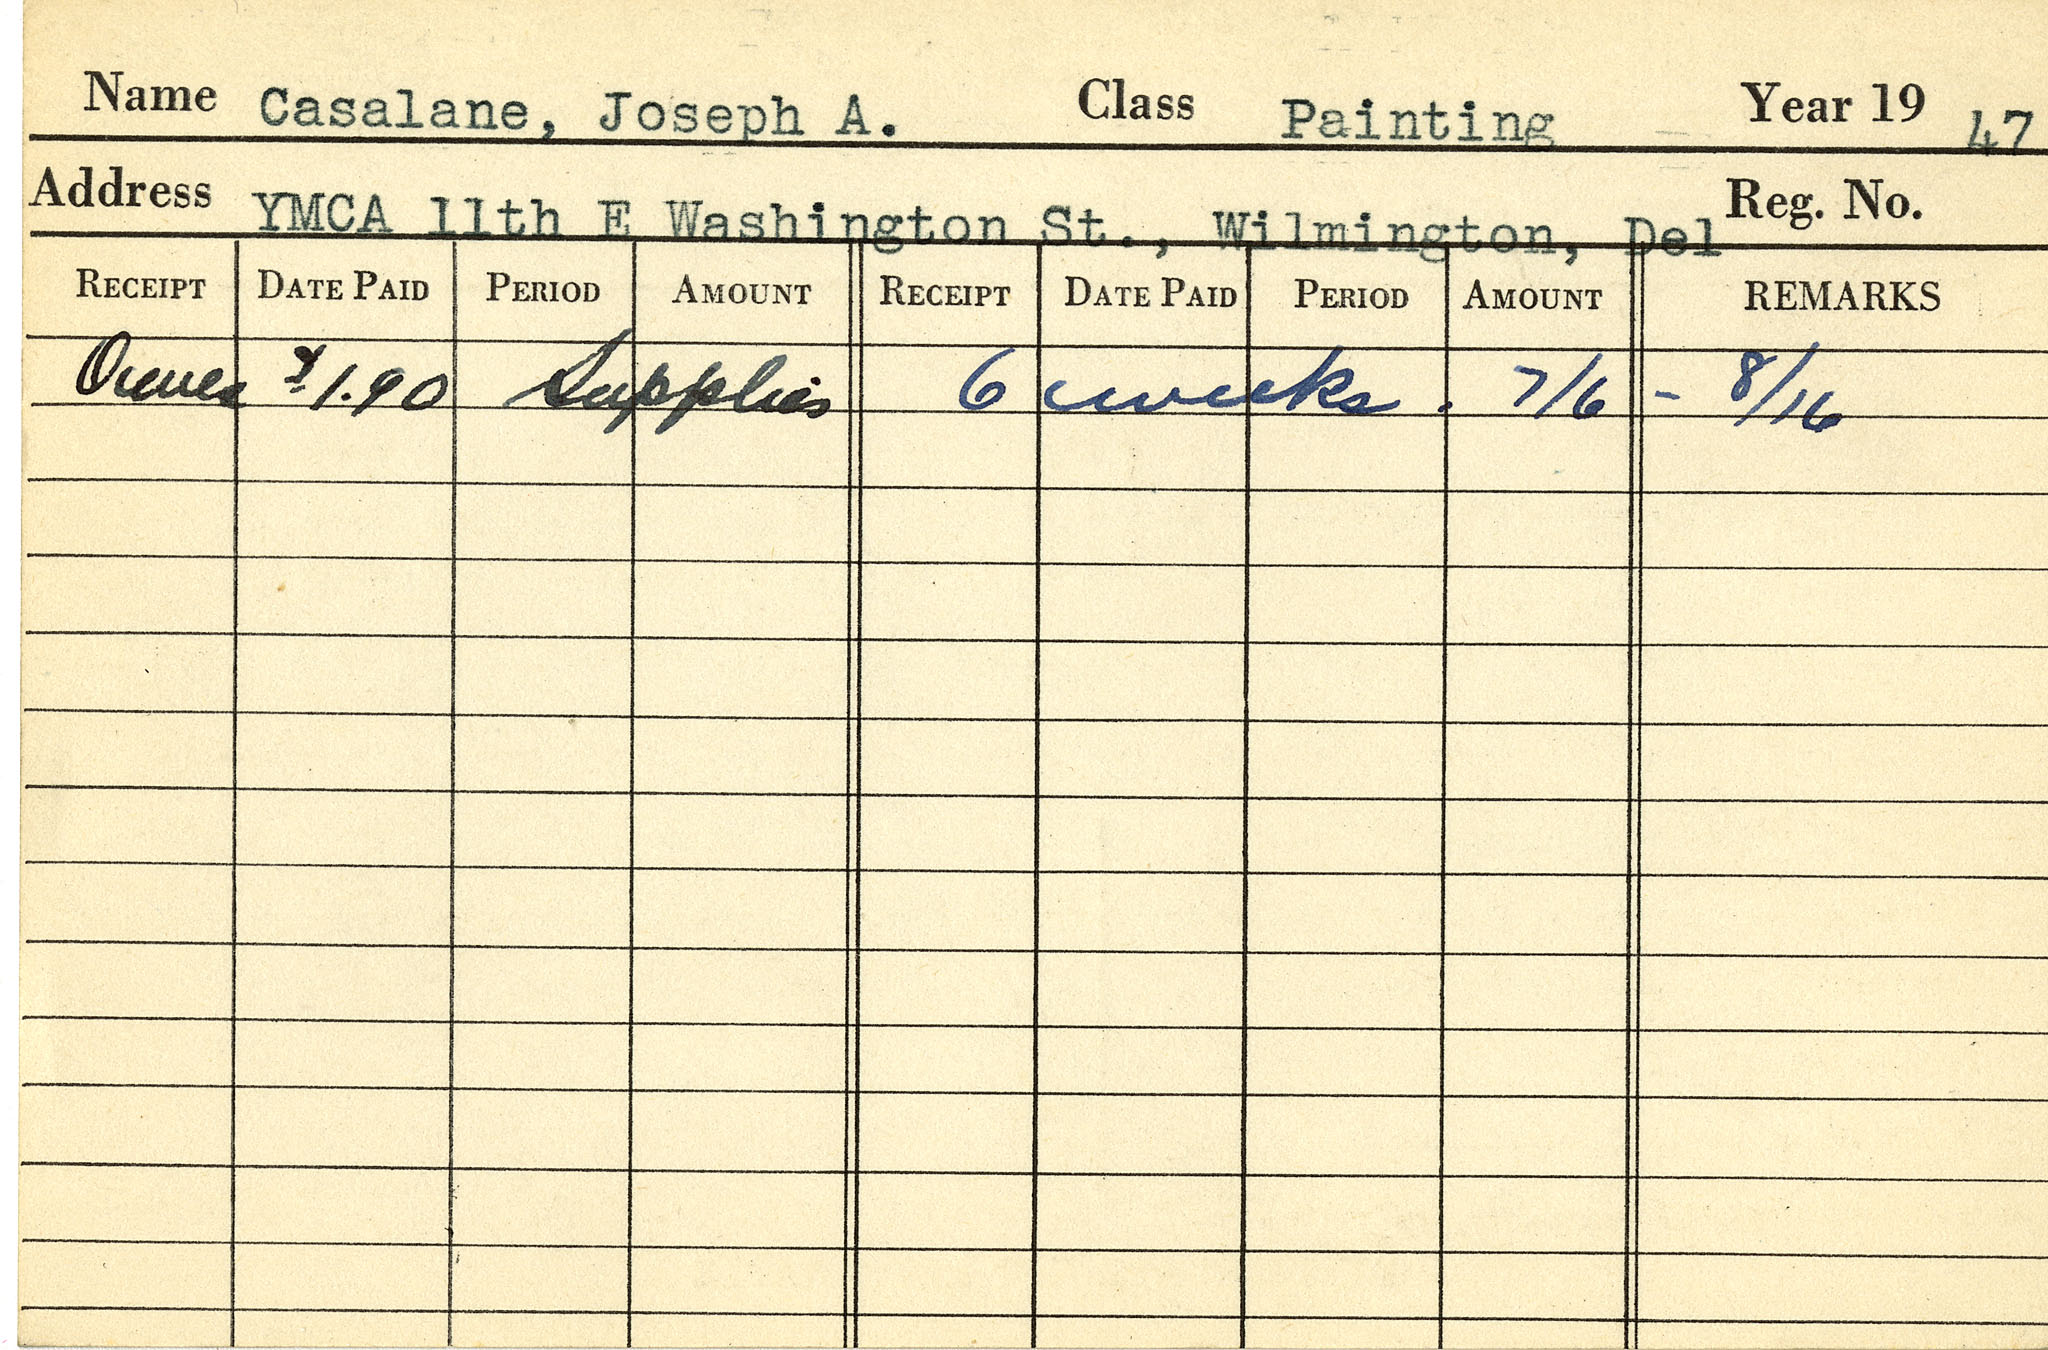 Name Casalane, Joseph A. Class Painting Year 19 47
Address YMCA 11th E Washington St., Wilmington, Del Reg. No.
RECEIPT DATE PAID PERIOD AMOUNT RECEIPT DATE PAID PERIOD AMOUNT REMARKS
Owes $1.90 Supplies 6 weeks. 7/6 - 8/16